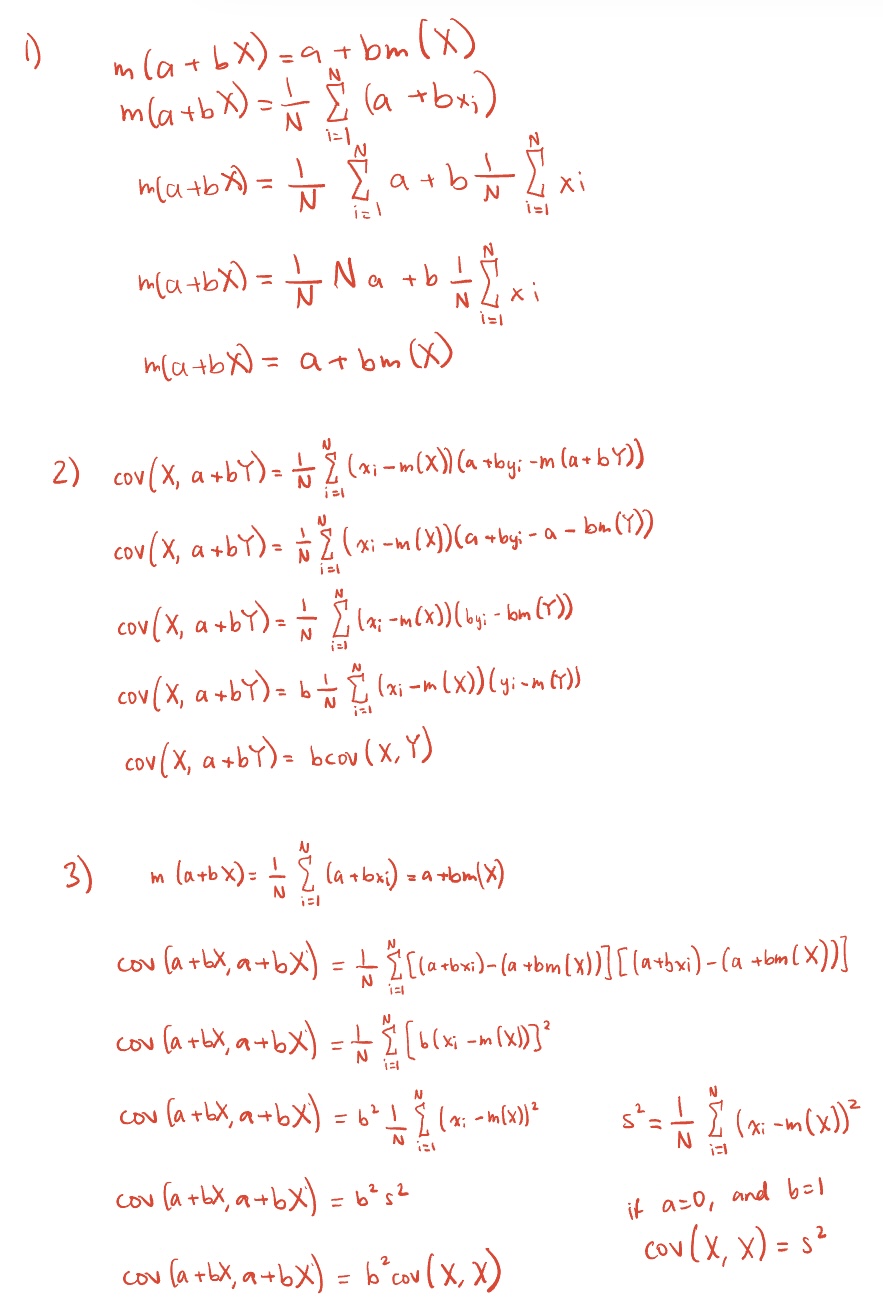 1) m(a + bX) = a + bm(X)
m(a+bX) = 1/N Σ_{i=1}^{N} (a + bx_i)
m(a+bX) = 1/N Σ_{i=1}^{N} a + b 1/N Σ_{i=1}^{N} xi
m(a+bX) = 1/N N a + b 1/N Σ_{i=1}^{N} xi
m(a+bX) = a + bm(X)
2) cov(X, a+bY) = 1/N Σ_{i=1}^{N} (x_i - m(X))(a + by_i - m(a+bY))
cov(X, a+bY) = 1/N Σ_{i=1}^{N} (x_i - m(X))(a + by_i - a - bm(Y))
cov(X, a+bY) = 1/N Σ_{i=1}^{N} (x_i - m(X))(by_i - bm(Y))
cov(X, a+bY) = b 1/N Σ_{i=1}^{N} (x_i - m(X))(y_i - m(Y))
cov(X, a+bY) = bcov(X, Y)
3) m(a+bX) = 1/N Σ_{i=1}^{N} (a+bx_i) = a+bm(X)
cov(a+bX, a+bX) = 1/N Σ_{i=1}^{N} [(a+bx_i) - (a+bm(X))][(a+bx_i) - (a+bm(X))]
cov(a+bX, a+bX) = 1/N Σ_{i=1}^{N} [b(x_i - m(X))]²
cov(a+bX, a+bX) = b² 1/N Σ_{i=1}^{N} (x_i - m(X))²
cov(a+bX, a+bX) = b² s²
cov(a+bX, a+bX) = b² cov(X, X)
s² = 1/N Σ_{i=1}^{N} (x_i - m(X))²
if a=0, and b=1
cov(X, X) = s²